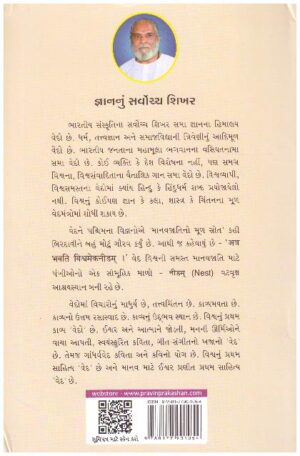 જ્ઞાનનું સર્વોચ્ચ શિખર
ભારતીય સંસ્કૃતિના સર્વોચ્ચ શિખર સમા જ્ઞાનના હિમાલય
વેદો છે. ધર્મ, તત્ત્વજ્ઞાન અને સમાજવિદ્યાની ત્રિવેણીનું આદિમૂળ
વેદો છે. ભારતીય જનતાના મહામૂલા ભગવાનના વસિયતનામા
સમા વેદો છે. કોઈ વ્યક્તિ કે દેશ વિશેષના નહીં, પણ સમગ્ર
વિશ્વના, વિશ્વસંવાદિતાના વૈતાલિક ગાન સમા વેદો છે. વિશ્વવ્યાપી,
વિશ્વસમસ્તના વેદોમાં ક્યાંય હિન્દુ કે હિંદુધર્મ શબ્દ પ્રયોજાયેલો
નથી. વિશ્વનું કોઈપણ જ્ઞાન કે કલા, શાસ્ત્ર કે ચિંતનના મૂળ
વેદમંત્રોમાં શોધી શકાય છે.
વેદને પશ્ચિમના વિદ્વાનોએ 'માનવજાતિનો મૂળ સ્રોત' કહી
બિરદાવીને બહુ મોટું ગૌરવ કર્યું છે. આથી જ કહેવાયું છે - 'अत्र
भवति विश्वमेकनीडम्' । વેદ વિશ્વની સમસ્ત માનવજાતિ માટે
પંખીઓનો એક સામૂહિક માળો - नीडम् (Nest) વટવૃક્ષ
આશ્રયસ્થાન બની રહે છે.
વેદોમાં વિચારોનું માધુર્ય છે, તત્ત્વચિંતન છે. કાવ્યમયતા છે.
કાવ્યનો ઉત્તમ રસાસ્વાદ છે. કાવ્યનું ઉદ્ભવ સ્થાન છે. વિશ્વનું પ્રથમ
કાવ્ય 'વેદો' છે. ઈશ્વર અને આત્માને જોડતી, મનની ઊર્મિઓને
વાચા આપતી, સ્વયંસ્ફુરિત કવિતા, ગીત સંગીતનો ખજાનો 'વેદ'
છે. તેમજ ગાંધર્વવેદ કવિતા અને કવિનો યોગ છે. વિશ્વનું પ્રથમ
સાહિત્ય 'વેદ' છે અને માનવ માટે ઈશ્વર પ્રણીત પ્રથમ સાહિત્ય
'વેદ' છે.
webstore : www.pravinprakashan.com
સૂચિપત્ર માટે સ્કેન કરો